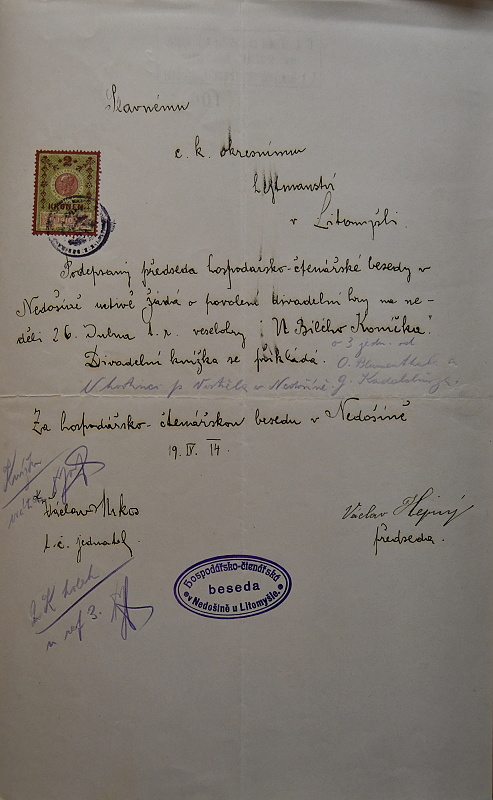 Slavnému
c. k. okresnímu
hejtmanství
v Litomyšli.
2
KRONEN
Podepsaný předseda hospodářsko-čtenářské besedy v
Nedošíně uctivě žádá o povolení divadelní hry na ne-
děli 26. Dubna t. r. veselohry „U Bílého Koníčka“.
o 3 jedn. od
Divadelní knížka se přikládá. O. Blumenthala a
V hostinci p. v Nedošíně. G. Kadelburga.
Za hospodářsko-čtenářskou besedu v Nedošíně
19. IV. 14.
Václav
t. č. jednatel.
Václav Hejný
předseda.
Hospodářsko-čtenářská
beseda
v Nedošíně u Litomyšle.
2 K kolek
3.